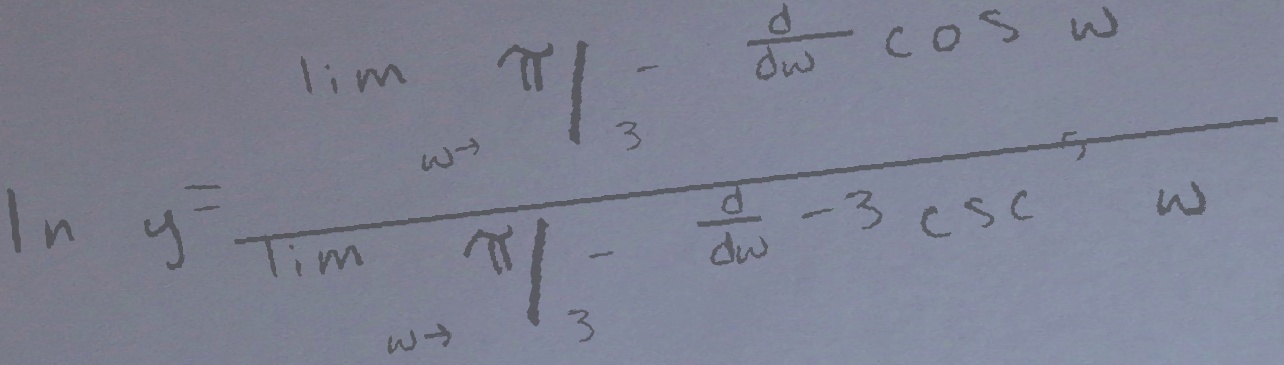 ln y = \frac{\lim_{w \to \pi/3^-} \frac{d}{dw} \cos w}{\lim_{w \to \pi/3^-} \frac{d}{dw} -3 \csc^5 w}